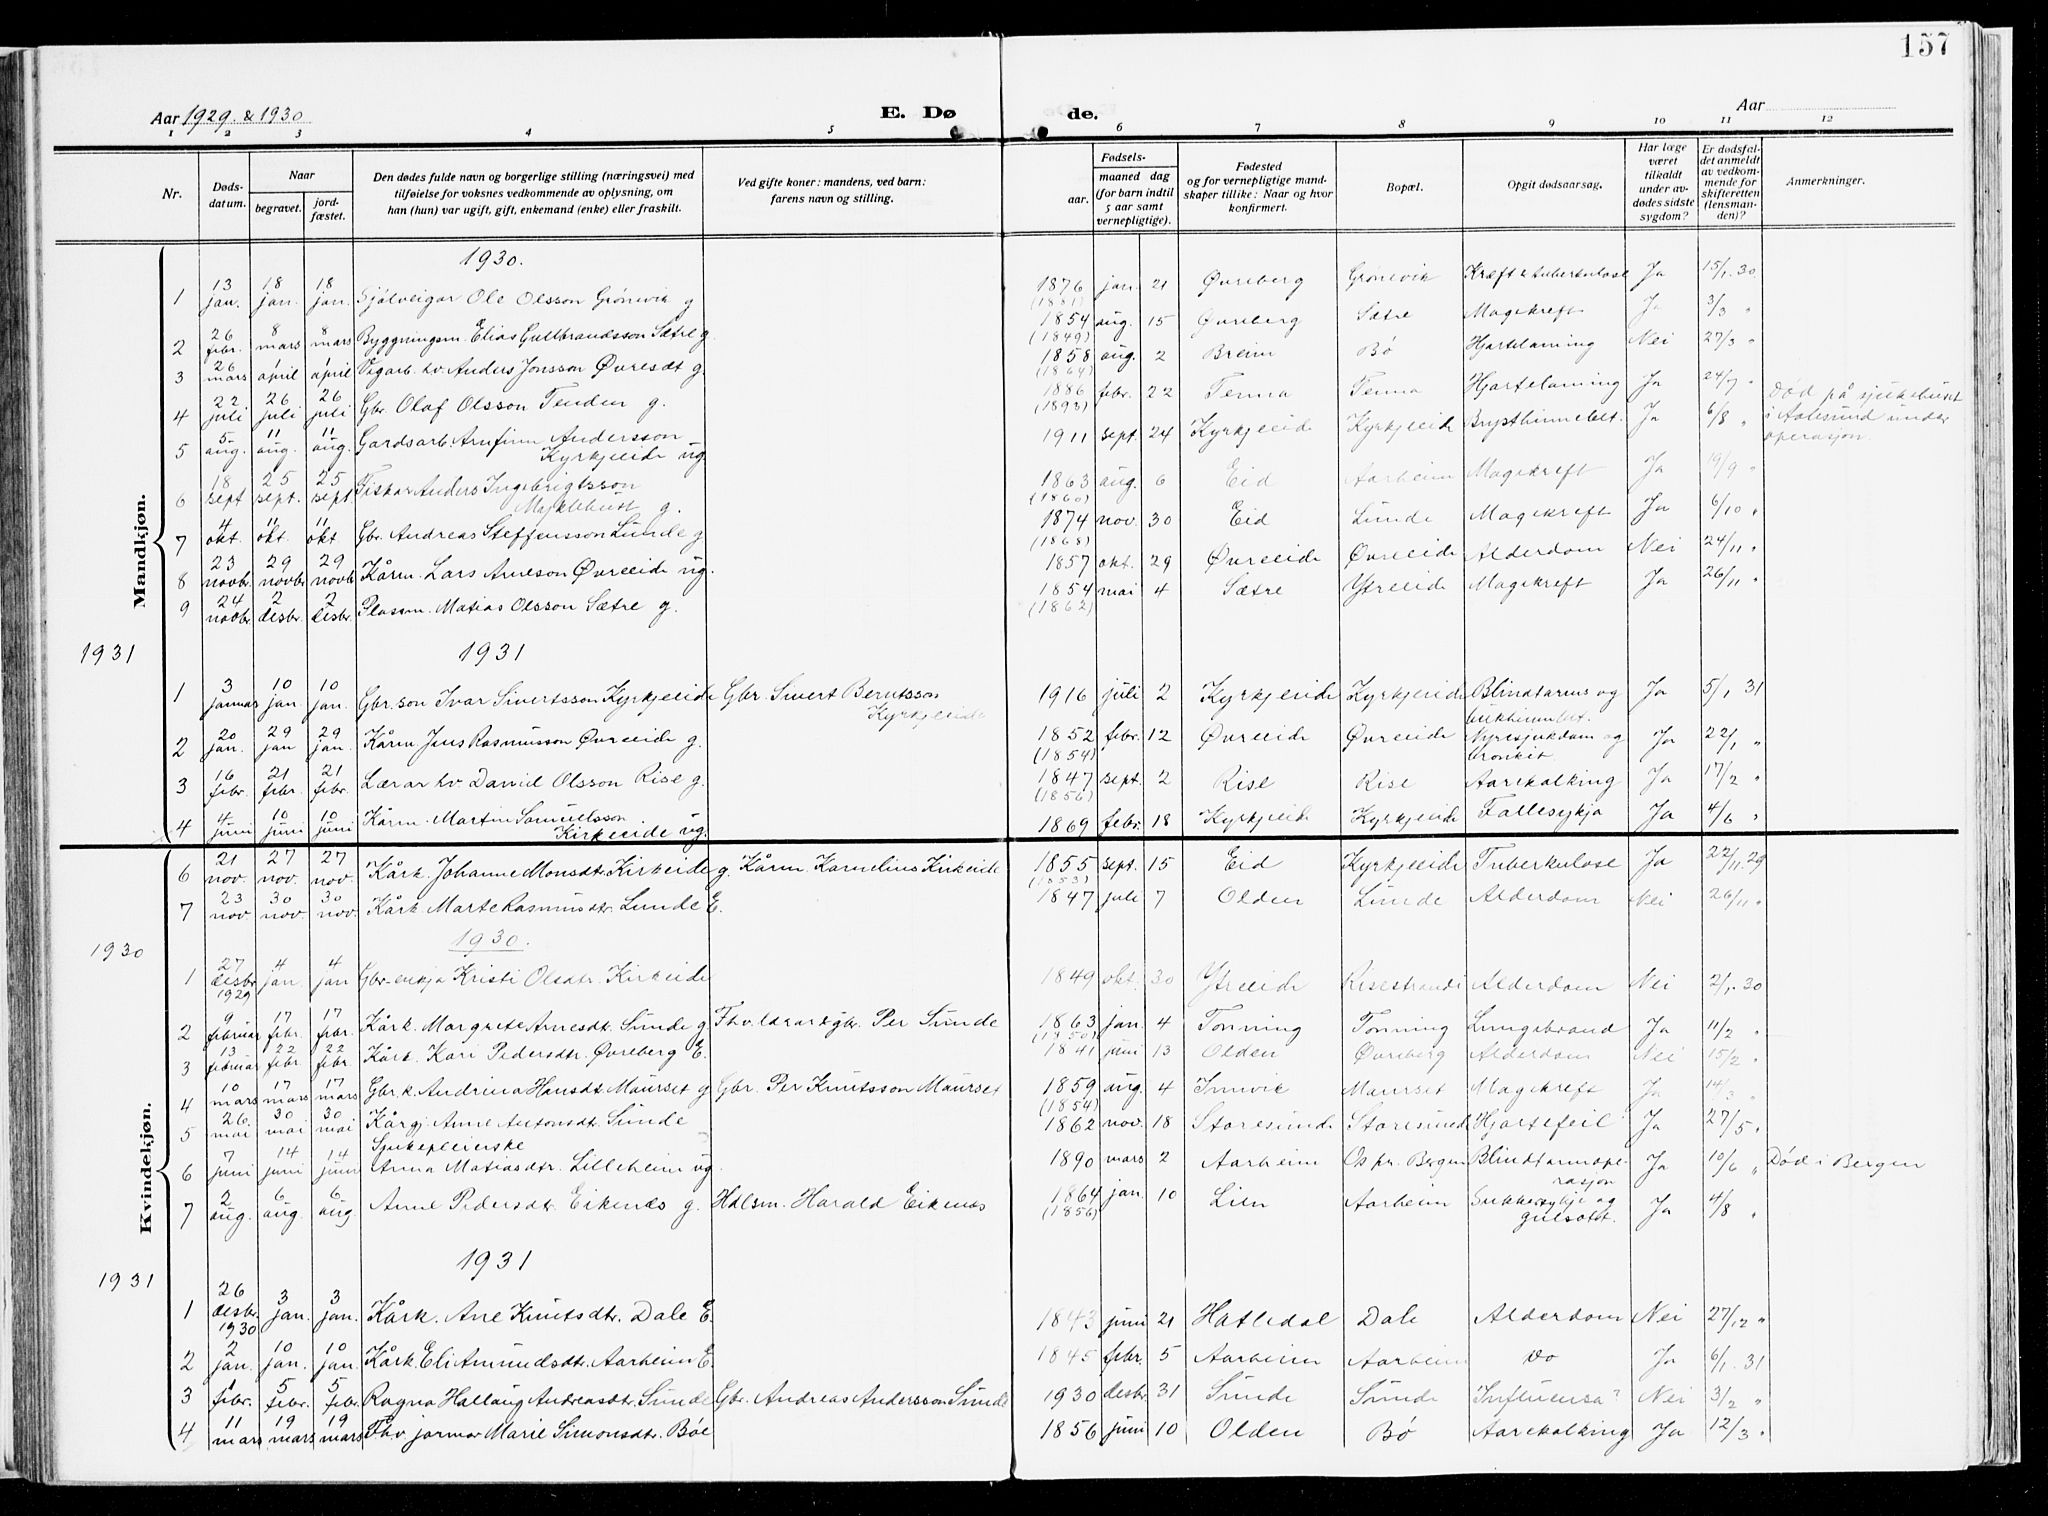 157
Aar 1929 & 1930 E. Dø de. Aar
1 2 3 4 5 6 7 8 9 10 11 12
Nr. Døds-datum. Naar begravet. jord-fæstet. Den dødes fulde navn og borgerlige stilling (næringsvei) med tilføielse for voksnes vedkommende av oplysning, om han (hun) var ugift, gift, enkemand (enke) eller fraskilt. Ved gifte koner: mandens, ved barn: farens navn og stilling. Fødsels- aar. maaned dag (for barn indtil 5 aar samt vernepligtige). Fødested og for vernepligtige mandskaper tillike: Naar og hvor konfirmert. Bopæl. Opgit dødsaarsag. Har læge været tilkaldt under avdødes sidste sygdom? Er dødsfaldet anmeldt av vedkommende for skifteretten (lensmanden)? Anmerkninger.
Mandkjøn.
1930.
1 13 jan. 18 jan. 18 jan. Sjølveigar Ole Olsson Grønevik g 1876 (1881) jan. 21 Øvreberg Grønevik Kræft & tuberkulose Ja 15/1. 30
2 26 febr. 8 mars 8 mars Byggningsm. Elias Gulbrandsson Sætre g 1854 (1849) aug. 15 Øvreberg Sætre Magekreft Ja 3/3 "
3 26 mars 1 april 1 april Vegarb. hv. Anders Jonsson Øvresæt g. 1858 (1864) aug. 2 Breim Bø Hjartelaming Nei 27/3 "
4 22 juli 26 juli 26 juli Gbr. Olaf Olsson Tenden g. 1886 (1893) febr. 22 Tenna Tenna Hjartelaming Ja 24/7 "
5 5 aug. 11 aug. 11 aug. Gardsarb. Arnfinn Andersson Kyrkjeeide ug. 1911 sept. 24 Kyrkjeeide Kyrkjeeide Brysthinnebet. Ja 6/8 " Død på sjukehuset i Aalesund under operasjon.
6 18 sept 25 sept. 25 sept. Fiskar Anders Ingebrigtsson Myklebust g. 1863 (1860) aug. 6 Eid Aarheim Magekreft Ja 19/9 "
7 4 okt. 11 okt. 11 okt. Gbr. Andreas Steffensson Lunde g 1874 (1868) nov. 30 Eid Lunde Magekreft Ja 6/10 "
8 23 novbr. 29 novbr 29 novbr Kårm. Lars Arneson Øvreeide ug. 1857 okt. 29 Øvreeide Øvreeide Alderdom Nei 24/11 "
9 24 novbr. 2 desbr. 2 desbr. Plassm. Matias Olsson Sætre g. 1854 (1862) mai 4 Sætre Ytreeide Magekreft Ja 26/11 "
1931 1931
1 3 januar 10 jan. 10 jan. Gbr.son Ivar Sivertsson Kyrkjeeide Gbr. Sivert Berntsson Kyrkjeeide 1916 juli 2 Kyrkjeeide Kyrkjeeide Blindtarms og bukhinnebet. Ja 5/1 31
2 20 jan. 29 jan 29 jan. Kårm. Jens Rasmusson Øvreeide g. 1852 (1854) febr. 12 Øvreeide Øvreeide Nyresjukdom og bronkit. Ja 22/1 "
3 16 febr. 21 febr. 21 febr. Lærar hv. Daniel Olsson Rise g. 1847 (1856) sept. 2 Rise Rise Aarekalking Ja 17/2 "
4 4 juni 10 juni 10 juni Kårm. Martin Samuelsson Kirkeeide ug. 1869 febr. 18 Kyrkjeeide Kyrkjeeide Fallesykja Ja 4/6 "
Kvindekjøn.
6 21 nov. 27 nov. 27 nov. Kårk. Johanne Monsdtr. Kirkeide g. Kårm. Kornelius Kirkeide 1855 (1853) sept. 15 Eid Kyrkjeeide Tuberkulose Ja 22/11. 29
7 23 nov 30 nov. 30 nov. Kårk. Marte Rasmusdtr. Lunde E. 1847 juli 7 Olden Lunde Alderdom Nei 26/11 "
1930 1930.
1 27 desbr 1929 4 jan 4 jan Gbr-enkja Kristi Olsdtr. Kirkeide 1849 okt. 30 Ytreeide Risestrandi Alderdom Nei 2/1. 30
2 9 februar 17 febr. 17 febr. Kårk. Margrete Arnesdt. Sunde g Fhv. lærar kgbr. Per Sunde 1863 (1850) jan. 4 Tonning Tonning Lungebrand Ja 11/2 "
3 13 februar 22 febr 22 febr. Kårk. Kari Pedersdtr. Øvreberg E. 1841 juni 13 Olden Øvreberg Alderdom Nei 15/2 "
4 10 mars 17 mars 17 mars Gbr. k. Andrina Hansdt. Maurset g Gbr. Per Knutsson Maurset 1859 (1854) aug. 4 Innvik Maurset Magekreft Ja 14/3 "
5 26 mai 30 mai 30 mai Kårgj. Anne Antonsdt. Sunde 1862 nov. 18 Storesunde Storesunde Hjartefeil Ja 27/5 "
6 7 juni 14 juni 14 juni Sjukepleierske Anna Matiasdtr. Lilleheim ug 1890 mars 2 Aarheim Os pr. Bergen Blindtarmoperasjon Ja 10/6 " Død i Bergen
7 2 aug. 6 aug. 6 aug. Anne Pedersdtr. Eikenæs g. Hdlsm. Harald Eikenæs 1864 (1856) jan. 10 Lien Aarheim Sukkersykje og gulsott. Ja 4/8 "
1931 1931
1 26 desbr. 1930 3 jan. 3 jan. Kårk. Ane Knutsdtr. Dale E. 1843 juni 21 Hatledal Dale Alderdom Nei 27/12 "
2 2 jan. 10 jan. 10 jan. Kårk. Eli Amundsdtr. Aarheim E. 1845 febr. 5 Aarheim Aarheim Do Ja 6/1. 31
3 1 febr. 5 febr. 5 febr. Ragna Hallaug Andreasdtr. Sunde Gbr. Andreas Andersson Sunde 1930 desbr. 31 Sunde Sunde Influensa? Nei 3/2 "
4 11 mars 19 mars 19 mars Fhv jormor Marie Simonsdtr. Bøe 1856 juni 10 Olden Bø Aarekalking Ja 12/3 "